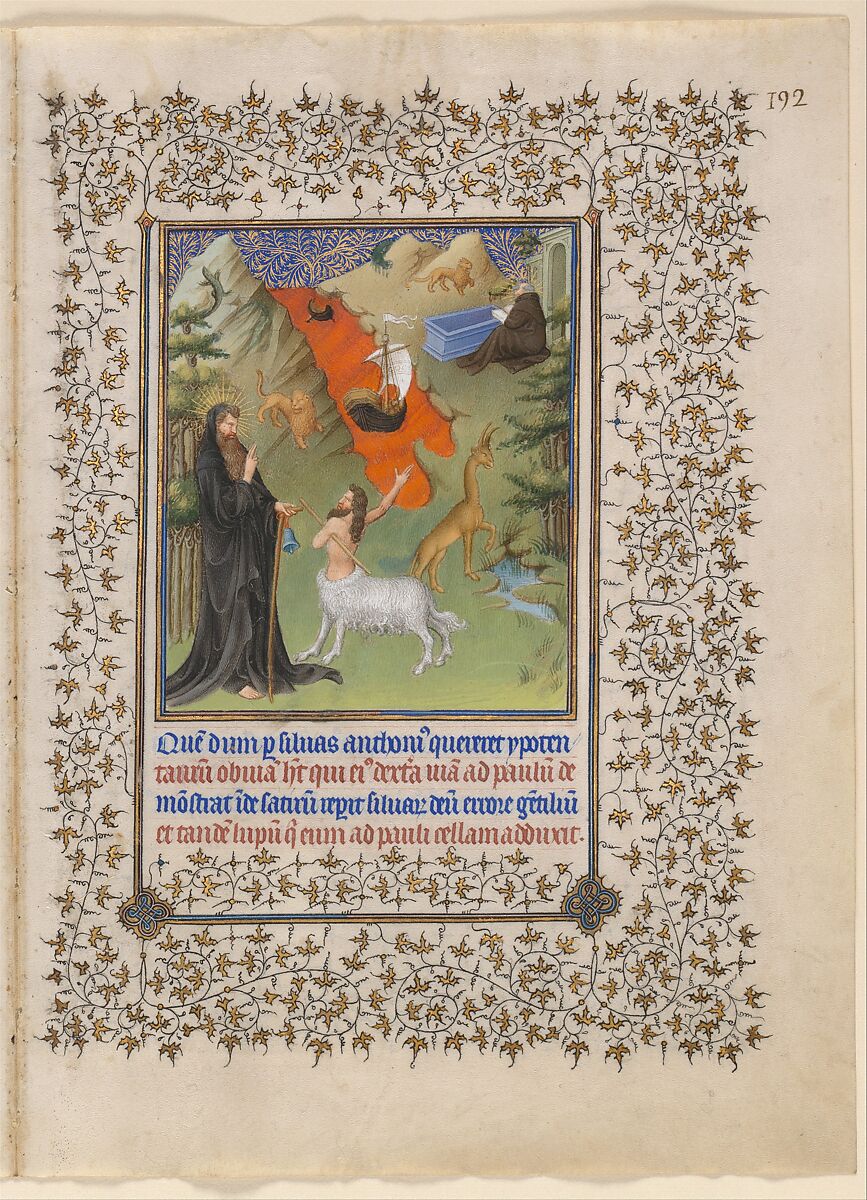 192
Quē dum ꝑ silvas anthoniꝰ quereret ypoten
taurū obviā hūt qui eiꝰ dextā viā ad paulū de
mōstrat īde satirū reperit silvaꝝ deū errore gētiliū
et tandē lupū q̄ eum ad pauli cellam adduxit.